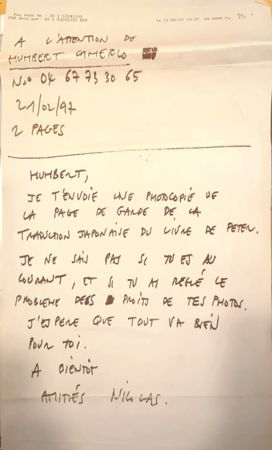 A L'ATTENTION DE
HUMBERT CAMERLO
N.o 04 67 73 30 65
21/02/97
2 PAGES
HUMBERT,
JE T'ENVOIE UNE PHOTOCOPIE DE
LA PAGE DE GARDE DE LA
TRADUCTION JAPONAISE DU LIVRE DE PETER.
JE NE SAIS PAS SI TU ES AU
COURANT, ET SI TU AS REGLÉ LE
PROBLEME DES DROITS DE TES PHOTOS.
J'ESPERE QUE TOUT VA BIEN
POUR TOI.
A BIENTÔT
AMITIÉS NICOLAS.